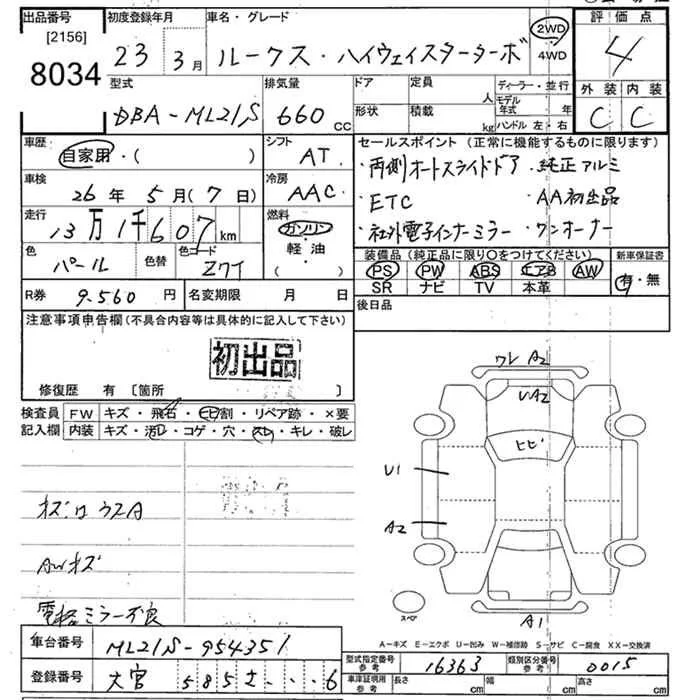 出品番号
[2156]
8034
初度登録年月
23 3月
車名・グレード
ルークス・ハイウェイスターターボ
2WD
4WD
評価点
4
型式
DBA-ML21S
排気量
660 cc
ドア
形状
定員 人
積載 kg
ディーラー・並行
モデル年式 年
ハンドル 左・右
外装 内装
C C
車歴
自家用・( )
シフト
AT
セールスポイント (正常に機能するものに限ります)
・両側オートスライドドア ・純正アルミ
・ETC ・AA初出品
・社外電子インナーミラー ・ワンオーナー
車検
26年 5月(7日)
冷房
AAC
走行
13万1千607km
燃料
ガソリン
軽油
( ・ )
色
パール
色替
色コード
Z7T
装備品 (純正品に限り○をつけてください)
PS PW ABS エアB AW
SR ナビ TV 本革
新車保証書
有・無
R券
9.560円
名変期限 月 日
後日品
注意事項申告欄 (不具合内容等は具体的に記入して下さい)
初出品
修復歴 有 〔箇所 〕
検査員
記入欄
FW キズ・飛石・ヒビ割・リペア跡・×要
内装 キズ・汚レ・コゲ・穴・スレ・キレ・破レ
ワレ A2
UA2
ヒビ
U1
A2
スペア
A1
AWキズ
電格ミラー不良
A-キズ E-エクボ U-凹み W-補修跡 S-サビ C-腐食 XX-交換済
車台番号
ML21S-954351
型式指定番号
参考
16363
類別区分番号
参考
0015
登録番号
大宮 585 さ ・・・6
車庫証明用
参考
長さ cm
cm
cm